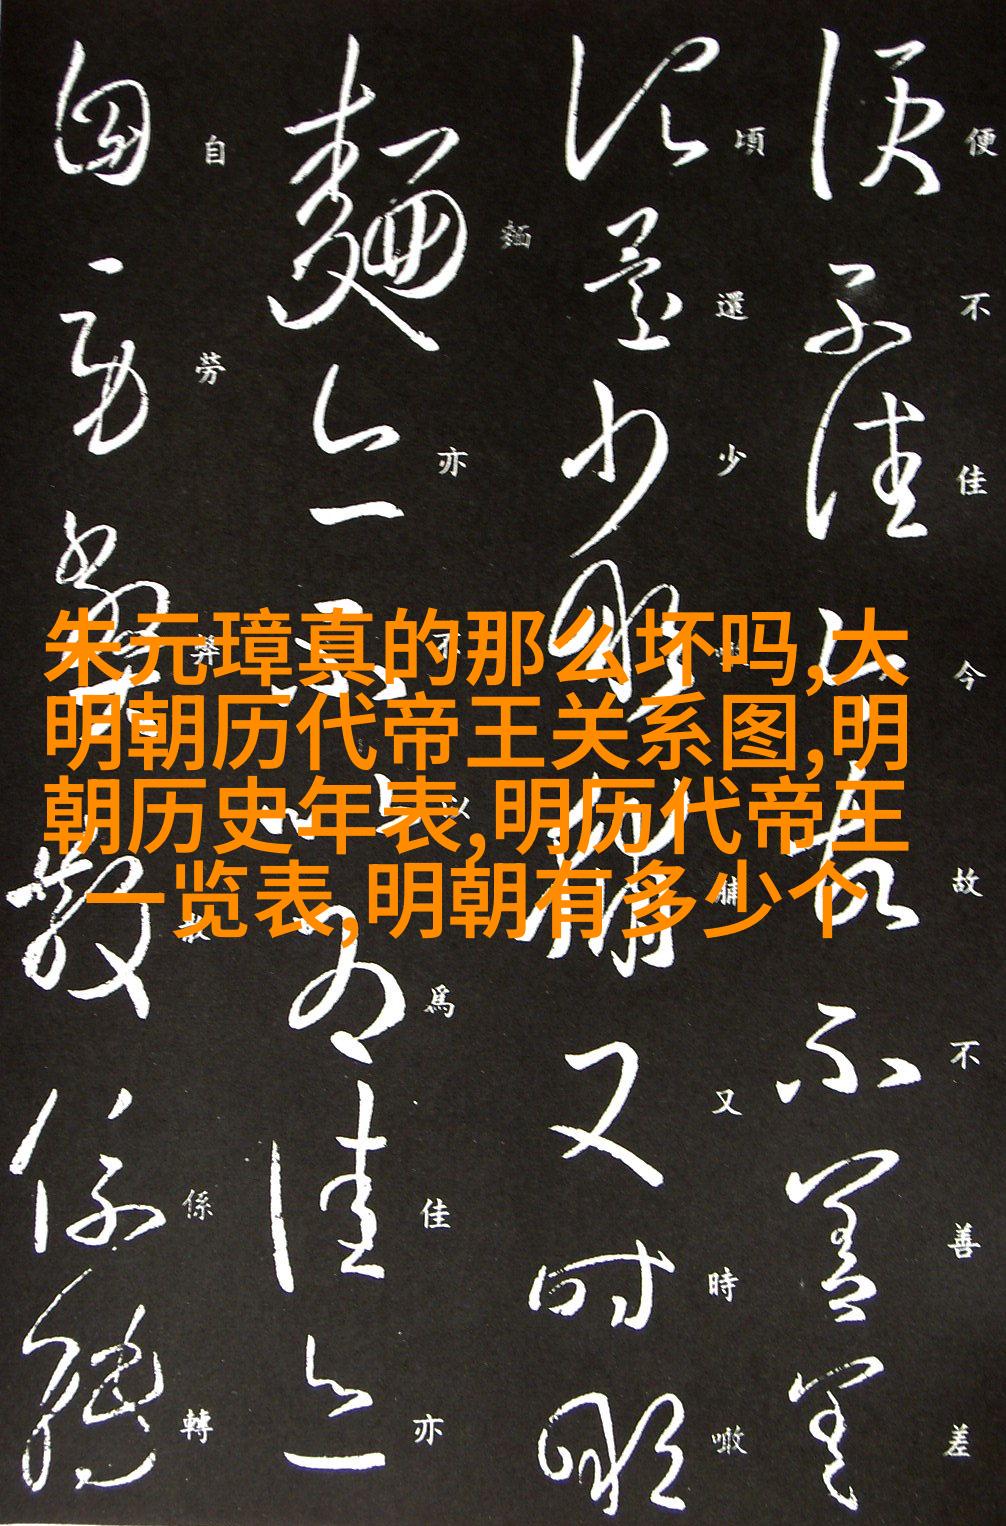 朱元璋真的那么坏吗,大
明朝历代帝王关系图,明
朝历史年表,明历代帝王
一览表,明朝有多少个
便不佳今故不善差
頃還少噉脯又時噉
麵亦不以為佳亦
自勞弊散係轉